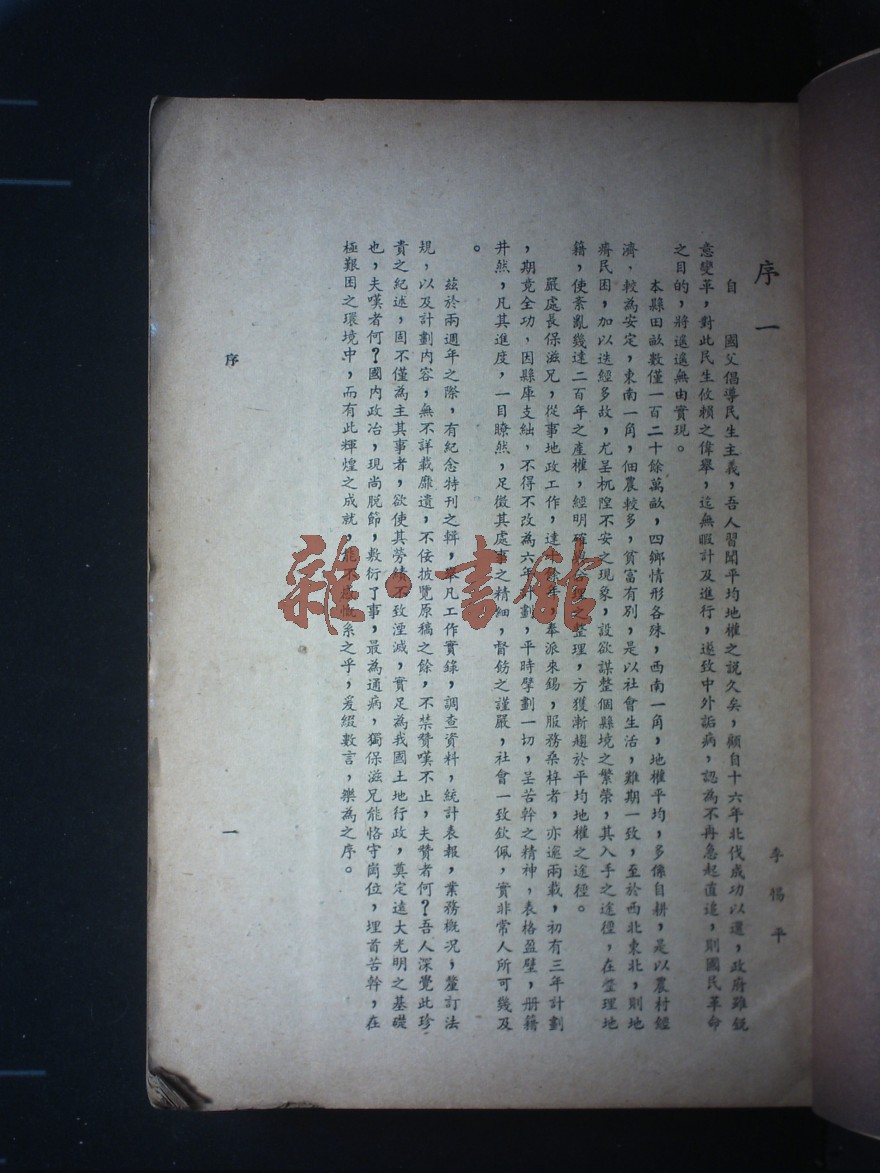 序一
李惕平
自　國父倡導民生主義，吾人習聞平均地權之說久矣，顧自十六年北伐成功以還，政府雖銳
意變革，對此民生攸賴之偉舉，迄無暇計及進行，遂致中外詬病，認為不再急起直追，則國民革命
之目的，將遙遙無由實現。
本縣田畝數僅一百二十餘萬畝，四鄉情形各殊，西南一角，地權平均，多係自耕，是以農村經
濟，較為安定，東南一角，佃農較多，貧富有別，是以社會生活，難期一致，至於西北東北，則地
瘠民困，加以迭經多故，尤呈杌隉不安之現象，設欲謀整個縣境之繁榮，其入手之途徑，在整理地
籍，使紊亂幾達二百年之產權，經明確之整理，方獲漸趨於平均地權之途徑。
嚴處長保滋兄，從事地政工作，達十餘年，奉派來錫，服務桑梓者，亦逾兩載，初有三年計劃
，期竟全功，因縣庫支絀，不得不改為六年計劃，平時擘劃一切，呈苦幹之精神，表格盈壁，册籍
井然，凡其進度，一目瞭然，足徵其處事之精細，督飭之謹嚴，社會一致欽佩，實非常人所可幾及
。
茲於兩週年之際，有紀念特刊之輯，舉凡工作實錄，調查資料，統計表報，業務概況，釐訂法
規，以及計劃內容，無不詳載靡遺，不佞披覽原稿之餘，不禁贊嘆不止，夫贊者何？吾人深覺此珍
貴之紀述，固不僅為主其事者，欲使其勞績不致湮滅，實足為我國土地行政，奠定遠大光明之基礎
也，夫嘆者何？國內政治，現尚脫節，敷衍了事，最為通病，獨保滋兄能恪守崗位，埋首苦幹，在
極艱困之環境中，而有此輝煌之成就，能不感慨系之乎，爰綴數言，樂為之序。
序
一
雜·書館